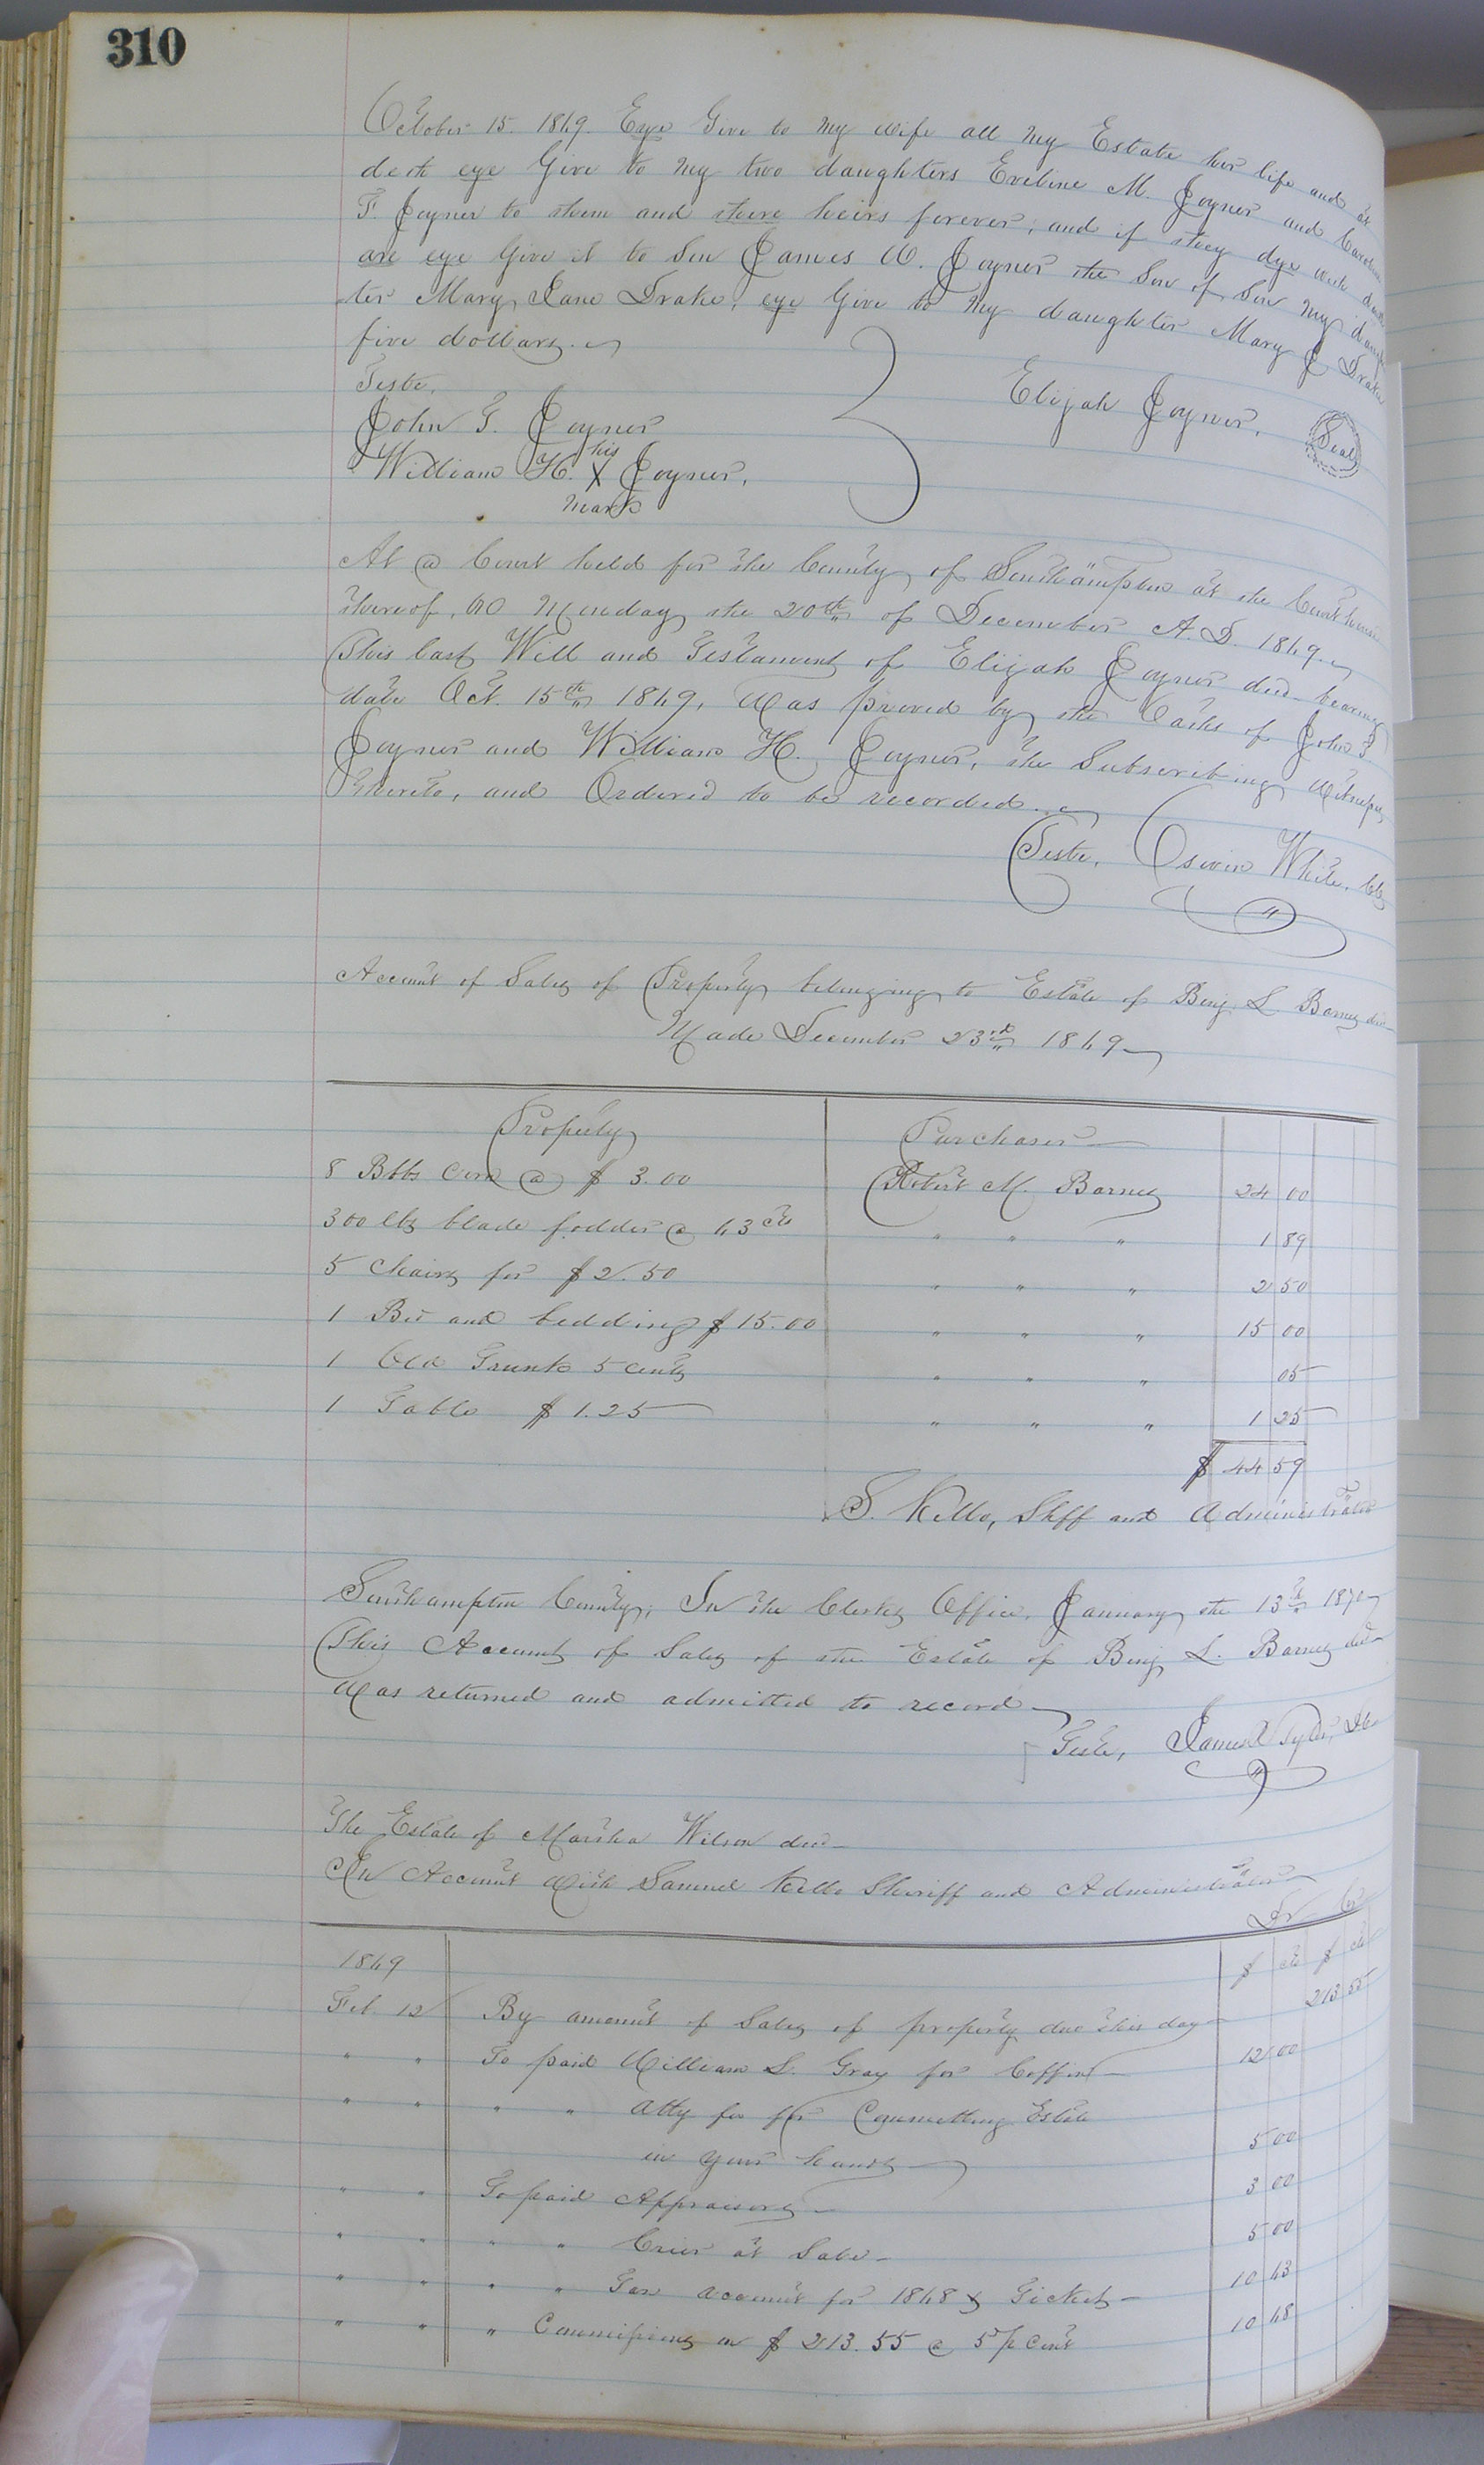 310
October 15. 1869. Eye Give to my wife all my Estate her life and at
deth eye Give to my two daughters Eveline M. Joyner and Caroline
F. Joyner to them and there heirs forever; and if they dye with
are eye Give it to Son James W. Joyner the Son of Son my daugh
ter Mary Jane Drake; eye Give to my daughter Mary J Drake
five dollars.
Teste,
John T. Joyner
Elijah Joyner. Seal
William H. his X mark Joyner.
At a Court held for the County of Southampton at the Courthouse
thereof, on Monday the 20th of December A.D. 1869.
This last Will and Testament of Elijah Joyner decd bearing
date Oct. 15th 1869, was proved by the Oaths of John T
Joyner and William H. Joyner, the Subscribing Witnesses
thereto, and Ordered to be recorded.
Teste, Oswin White, Clk
Account of Sales of Property belonging to Estate of Benj. L. Barnes decd
Made December 23rd 1869
Property Purchaser
8 Bbls Corn @ $3.00 Robert M. Barnes 24 00
300 lbs blade fodder @ 63 cts " " " 1 89
5 Chairs for $2.50 " " " 2 50
1 Bed and bedding $15.00 " " " 15 00
1 Old Trunk 5 cents " " " 05
1 Table $1.25 " " " 1 25
$ 44 59
S. Kello, Shff and Administrator
Southampton County; In the Clerks Office, January the 13th 1870
This Account of Sales of the Estate of Benj L. Barnes decd
was returned and admitted to record
Teste, James A Tyler, D.C.
The Estate of Martha Wilson decd
In Account with Samuel Kello Sheriff and Administrator
Dr Cr
1869 $ cts $ cts
Feb. 12 By amount of Sales of property due this day 213 55
" " To paid William S. Gray for Coffin 12 00
" " " " Atty fee for Committing Estate
in your hands 5 00
" " To paid Appraisers 3 00
" " " " Crier at Sale 5 00
" " " " Tax account for 1868 & Tickets 10 63
" " " Commissions on $213.55 @ 5 p Cent 10 68